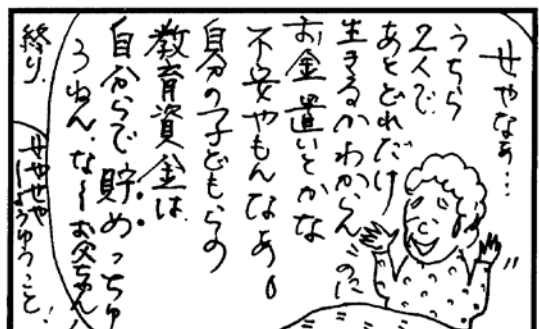 せやなぁ…
うちら
2人で
あとどれだけ
生きるかわからんのに
お金置いとかな
不安やもんなあ。
自分の子どもらの
教育資金は
自分らで貯めっちゅ
うねん、なーお父ちゃん
せやせや
しょうゆうこと!
終り